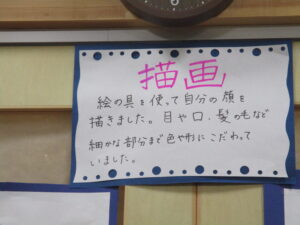 描画
絵の具を使って自分の顔を
描きました。目や口、髪の毛など
細かな部分まで色や形にこだわって
いました。